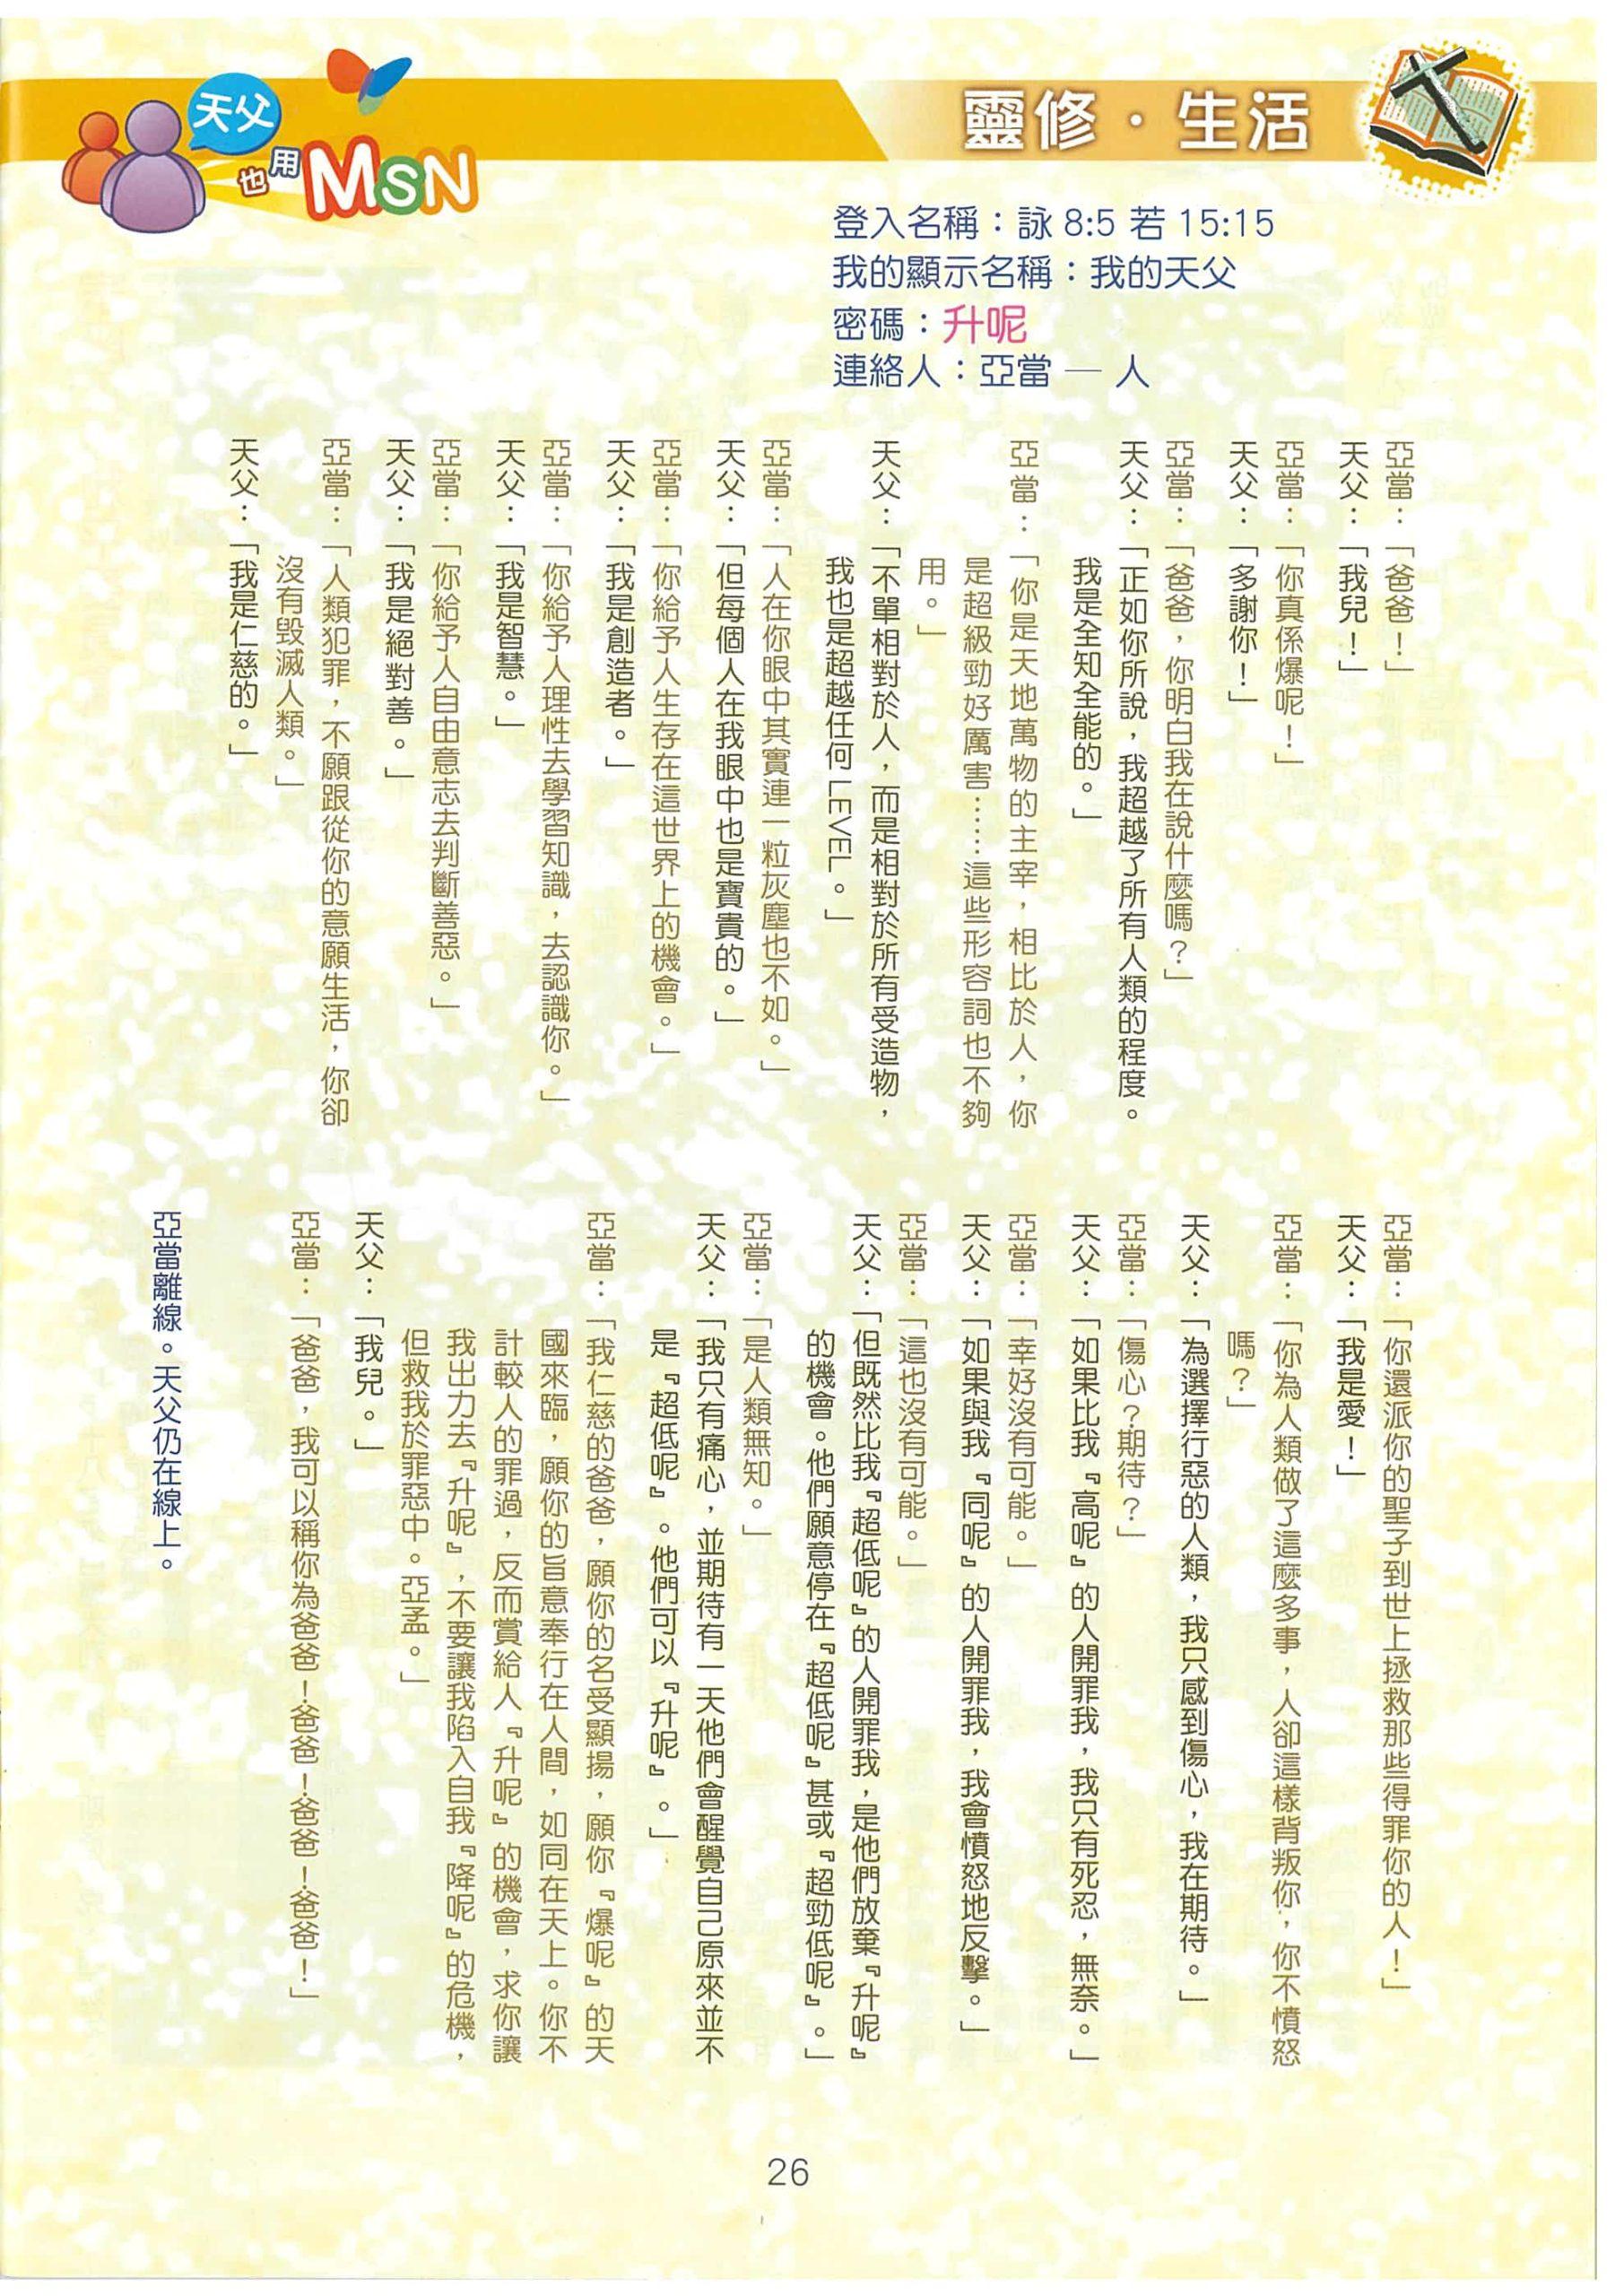 靈修·生活
天父
也用
MSN
登入名稱：詠 8:5 若 15:15
我的顯示名稱：我的天父
密碼：升呢
連絡人：亞當 — 人
亞當：「爸爸！」
天父：「我兒！」
亞當：「你真係爆呢！」
天父：「多謝你！」
亞當：「爸爸，你明白我在說什麼嗎？」
天父：「正如你所說，我超越了所有人類的程度。
我是全知全能的。」
亞當：「你是天地萬物的主宰，相比於人，你
是超級勁好厲害……這些形容詞也不夠
用。」
天父：「不單相對於人，而是相對於所有受造物，
我也是超越任何LEVEL。」
亞當：「人在你眼中其實連一粒灰塵也不如。」
天父：「但每個人在我眼中也是寶貴的。」
亞當：「你給予人生存在這世界上的機會。」
天父：「我是創造者。」
亞當：「你給予人理性去學習知識，去認識你。」
天父：「我是智慧。」
亞當：「你給予人自由意志去判斷善惡。」
天父：「我是絕對善。」
亞當：「人類犯罪，不願跟從你的意願生活，你卻
沒有毀滅人類。」
天父：「我是仁慈的。」
亞當：「你還派你的聖子到世上拯救那些得罪你的人！」
天父：「我是愛！」
亞當：「你為人類做了這麼多事，人卻這樣背叛你，你不憤怒
嗎？」
天父：「為選擇行惡的人類，我只感到傷心，我在期待。」
亞當：「傷心？期待？」
天父：「如果比我『高呢』的人開罪我，我只有死忍，無奈。」
亞當：「幸好沒有可能。」
天父：「如果與我『同呢』的人開罪我，我會憤怒地反擊。」
亞當：「這也沒有可能。」
天父：「但既然比我『超低呢』的人開罪我，是他們放棄『升呢』
的機會。他們願意停在『超低呢』甚或『超勁低呢』。」
亞當：「是人類無知。」
天父：「我只有痛心，並期待有一天他們會醒覺自己原來並不
是『超低呢』。他們可以『升呢』。」
亞當：「我仁慈的爸爸，願你的名受顯揚，願你『爆呢』的天
國來臨，願你的旨意奉行在人間，如同在天上。你不
計較人的罪過，反而賞給人『升呢』的機會，求你讓
我出力去『升呢』，不要讓我陷入自我『降呢』的危機，
但救我於罪惡中。亞孟。」
天父：「我兒。」
亞當：「爸爸，我可以稱你為爸爸！爸爸！爸爸！爸爸！」
亞當離線。天父仍在線上。
26